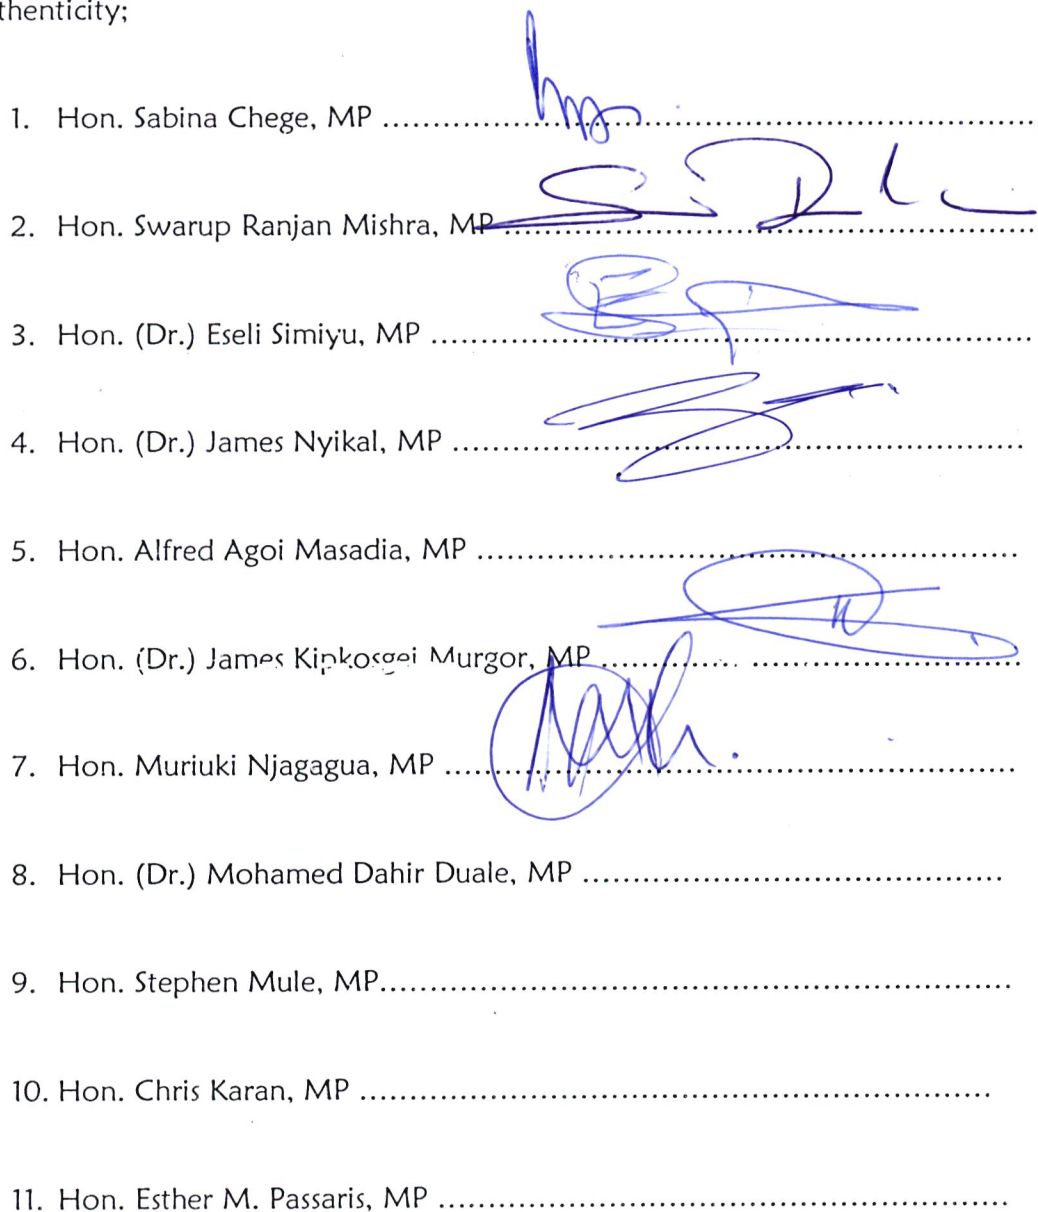 thenticity;
1. Hon. Sabina Chege, MP ............................................................
2. Hon. Swarup Ranjan Mishra, MP ............................................................
3. Hon. (Dr.) Eseli Simiyu, MP ............................................................
4. Hon. (Dr.) James Nyikal, MP ............................................................
5. Hon. Alfred Agoi Masadia, MP ............................................................
6. Hon. (Dr.) James Kipkosgei Murgor, MP ............................................................
7. Hon. Muriuki Njagagua, MP ............................................................
8. Hon. (Dr.) Mohamed Dahir Duale, MP ............................................................
9. Hon. Stephen Mule, MP............................................................
10. Hon. Chris Karan, MP ............................................................
11. Hon. Esther M. Passaris, MP ............................................................